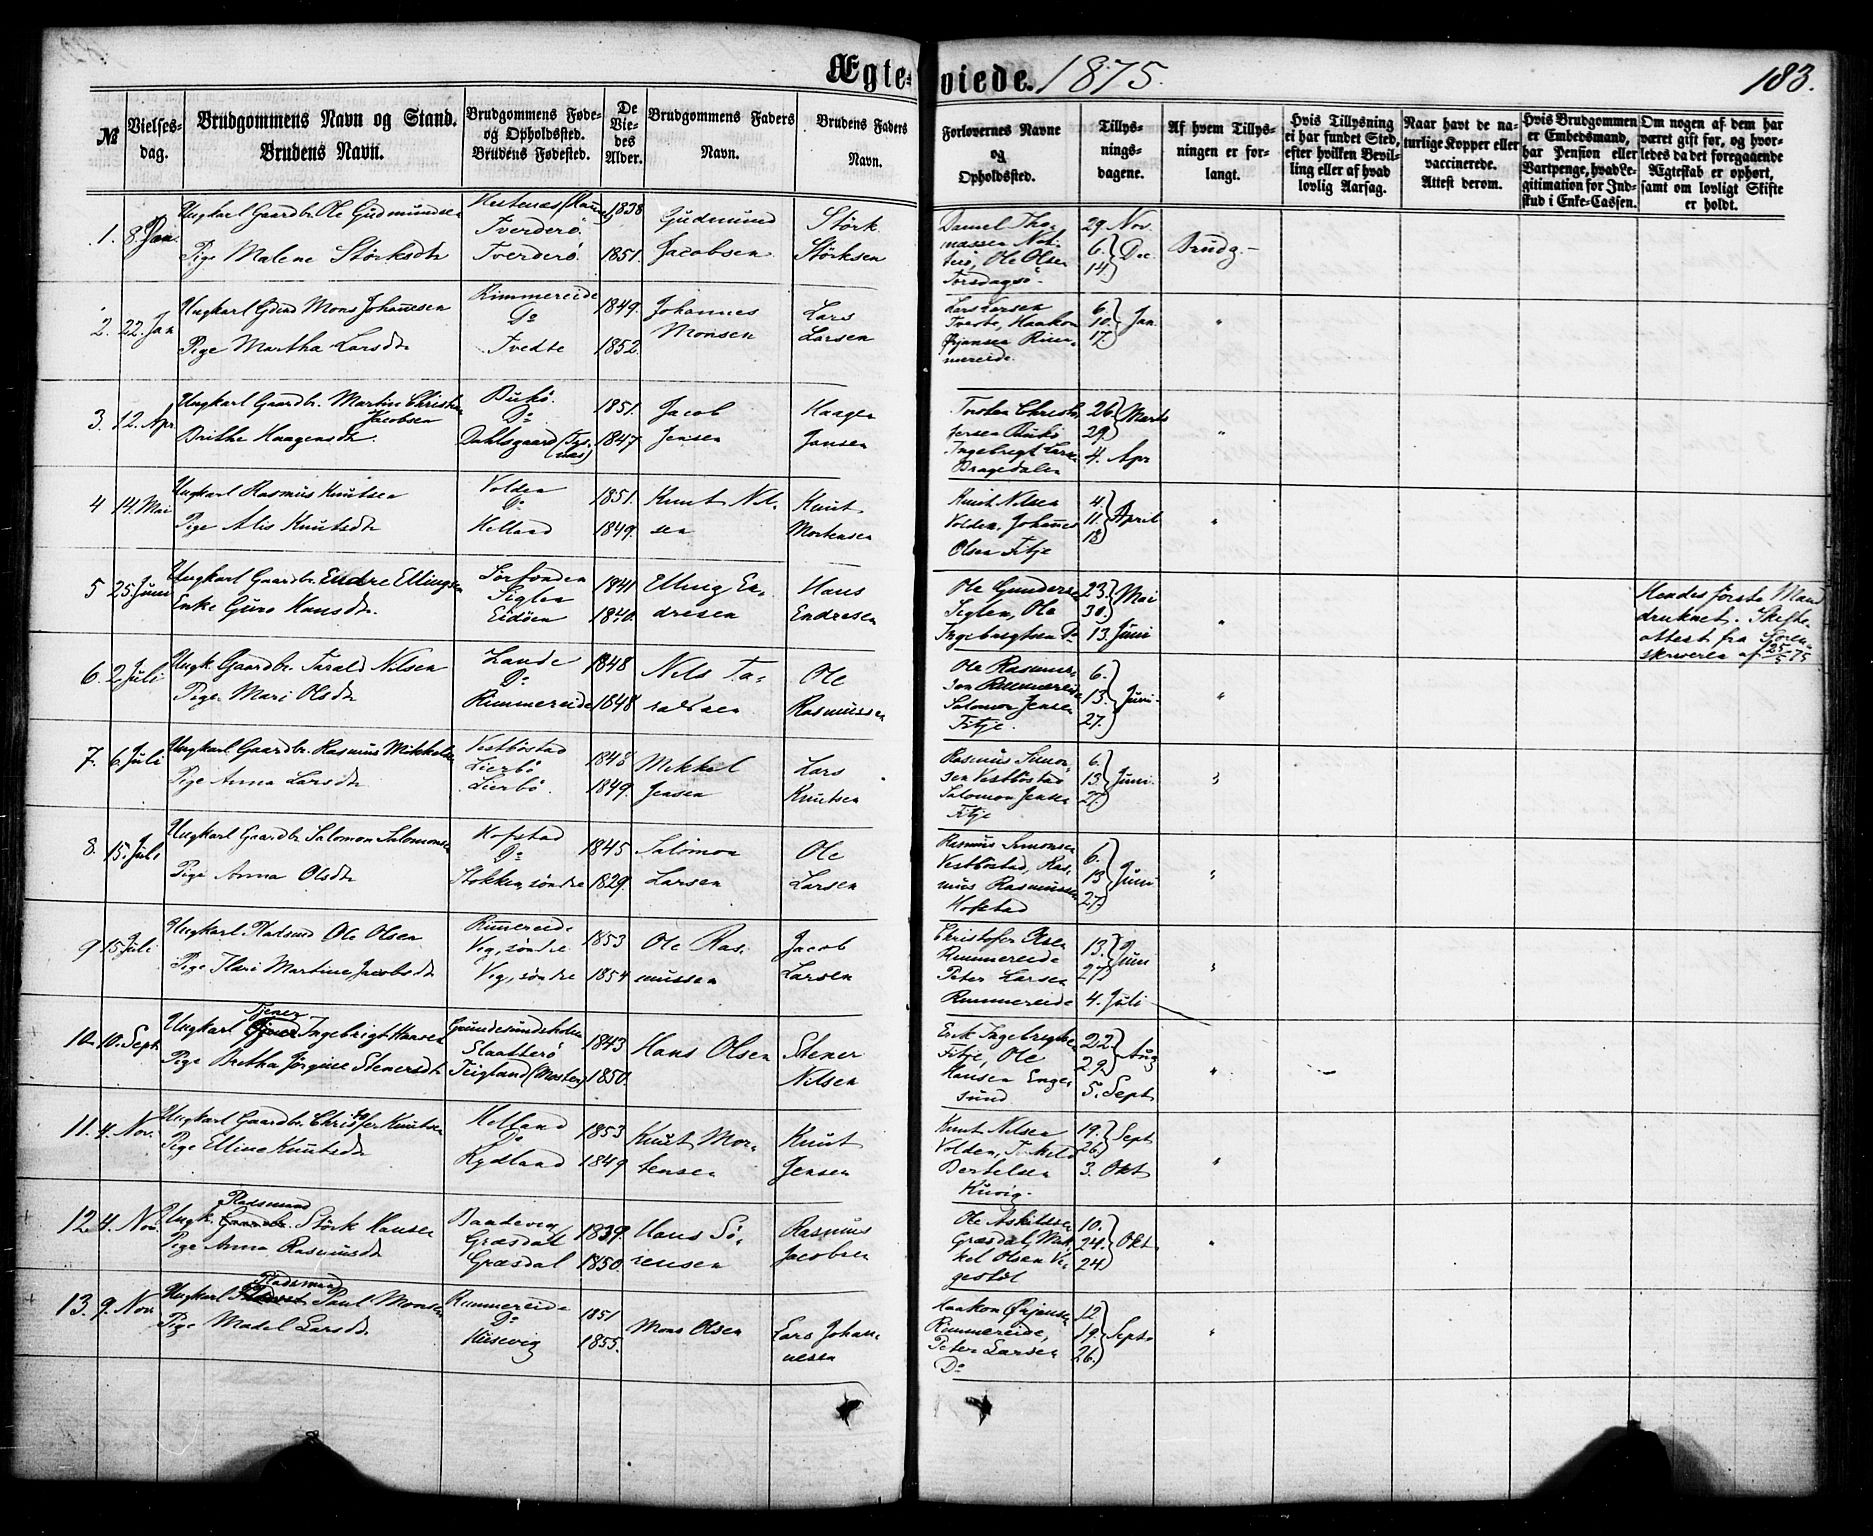 Ægteviede. 1875. 183.
№ | Vielsesdag. | Brudgommens Navn og Stand. Brudens Navn. | Brudgommens Føde- og Opholdssted. Brudens Fødested. | De Viedes Alder. | Brudgommens Faders Navn. | Brudens Faders Navn. | Forlovernes Navne og Opholdssted. | Tillysningsdagene. | Af hvem Tillysningen er forlangt. | Hvis Tillysning ei har fundet Sted, efter hvilken Bevilling eller af hvad lovlig Aarsag. | Naar havt de naturlige Kopper eller vaccinerede. Attest derom. | Hvis Brudgommen er Embedsmand, har Pension eller Vartpenge, hvad Legitimation for Indskud i Enke-Cassen. | Om nogen af dem har været gift før, og hvorledes da det foregaaende Ægteskab er ophørt, samt om lovligt Skifte er holdt.
1. 8. Jan. Ungkarl Gaardbr. Ole Gudmundsen 1838 Gudmund Jacobsen
Tverderö.
Pige Malene Störksdtr Tverderö 1851. Störk Störksen
Daniel Thomassen
Ole Olsen
Torsdagsö.
29. Nov. 6. 14. Dec Brudg.
2. 22. Jan Ungkarl Mons Johannesen Rimmereide Do 1849. Johannes Monsen
Pige Martha Larsdtr Tvedte 1852. Lars Larsen
Lars Larsen
Tvedte, Haakon
Ørjansen Rimmereide.
6. 10. 17. Jan. "
3. 12. Apr. Ungkarl Gaardbr. Martin Christian Jacobsen Bukö. Do 1851. Jacob Jensen
Brithe Haagensdtr. Dahlsgaard (Tysnæs) 1847 Haagen Jansen
Bukö
Ingebrigt
Bragedalen
26. 29. Marts 4. Apr "
4 14. Mai Ungkarl Rasmus Knutsen Volden Do 1851. Knut Nilsen
Pige Alis Knutsdtr Helland 1849. Knut Mortensen
Knut Nilsen
Volden, Johannes
Olsen Fitje
4. 11. 18. April "
5 25. Juni Ungkarl Gaardbr. Endre Ellingsen Sörfonden Siglen 1841 Elling Endresen
Enke Guro Hansdtr. Eidöen 1840. Hans Endresen
Ole Gunderse
Siglen, Ole
Ingebrigtsen Do
23. 30. Mai 13. Juni "
Hendes förste Mand
druknet. Skifte-
attest fra Soren-
skriveren af 25/5 75
6. 2 Juli Ungk. Gaardbr. Tarald Nilsen Lande Do 1848 Nils Taraldsen
Pige Mari Olsdtr Rimmereide 1848 Ole Rasmussen
Ole Rasmussen
Rimmereide
Salomon Jensen
Fitje.
6. 13. 27. Juni "
7. 6. Juli Ungkarl Gaardbr. Rasmus Mikkelsen Vestböstad Lierbö 1848 Mikkel Jensen
Pige Anna Larsdtr Lierbö. 1849. Lars Knutsen
Rasmus Simonsen
Vestböstad
Salomon Jensen
Fitje
6. 13. 27. Juni. "
8. 15. Juli Ungkarl Gaardbr Salomon Salomonsen Hofstad Do 1845 Salomon Larsen
Pige Anna Olsdtr Stokken, söndre 1829. Ole Larsen
Rasmus Simonsen
Vestböstad, Rasmus
Rasmussen
Hofstad
6. 13 27. Juni "
9 15 Juli Ungkarl Pladsmd Ole Olsen Rimereide Vig, söndre 1853 Ole Rasmussen
Pige Martine Jacobsdtr Vig, söndre 1854 Jacob Larsen
Christofer Olsen
Rimmereide
Peter Larsen
Rimmereide
13. 27. Juni 4. Juli "
10. 10. Sept. Ungkarl Tjener Ingebrigt Hansen Slaatterö 1843 Hans Olsen
Pige Bretha Jörgine Stenersdtr Teigland (Moster) 1850. Stener Nilsen
Erik Ingebrigtsen
Fitje, Ole
Hansen Engesund
22. 29. Aug 5. Sept "
11. 4. Nov. Ungkarl Gaardbr. Christofer Knutsen Helland Do 1853 Knut Mortensen
Pige Elline Knutsdtr Rydland 1849 Knut Jensen
Knut Nilsen
Volden
Bertelsen
19. 26. Sept 3. Okt "
12. 4. Nov. Ungk. Pladsmand Störk Hansen Græsdal 1839. Hans Sörensen
Pige Anna Rasmusdtr Græsdal 1850. Rasmus Jacobsen
Ole Askildsen
Græsdal, Mikkel
Olsen Vegestöl
10. 24. 24. Okt "
13. 9. Nov. Ungkarl Pladsmand Paul Monsen Rimmereide Do 1851 Mons Olsen
Pige Madel Larsdtr 1855. Lars Johannesen
Haakon Ørjansen
Rimmereide,
Peter Larsen
Do
12 19. 26. Sept. "